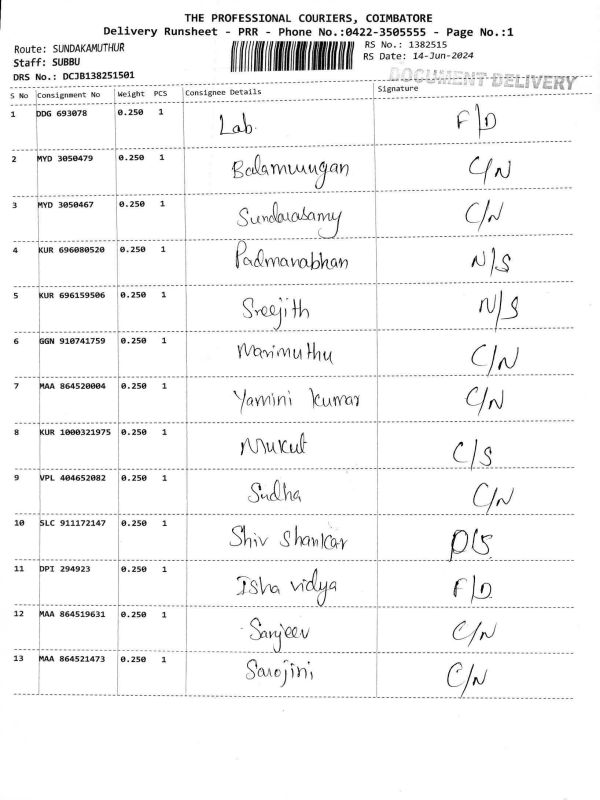 THE PROFESSIONAL COURIERS, COIMBATORE
Delivery Runsheet - PRR - Phone No.:0422-3505555 - Page No.:1
Route: SUNDAKAMUTHUR
RS No.: 1382515
Staff: SUBBU
RS Date: 14-Jun-2024
DRS No.: DCJB138251501
DOCUMENT DELIVERY
S No Consignment No Weight PCS Consignee Details Signature
1 DDG 693078 0.250 1 Lab. F/D
2 MYD 3050479 0.250 1 Balamurugan C/N
3 MYD 3050467 0.250 1 Sundarasamy C/N
4 KUR 696080520 0.250 1 Padmanabhan N/S
5 KUR 696159506 0.250 1 Sreejith N/S
6 GGN 910741759 0.250 1 Marimuthu C/N
7 MAA 864520004 0.250 1 Yamini kumar C/N
8 KUR 1000321975 0.250 1 Mukut C/S
9 VPL 404652082 0.250 1 Sudha C/N
10 SLC 911172147 0.250 1 Shiv Shankar D/S
11 DPI 294923 0.250 1 Isha vidya F/D
12 MAA 864519631 0.250 1 Sanjeev C/N
13 MAA 864521473 0.250 1 Sarojini C/N